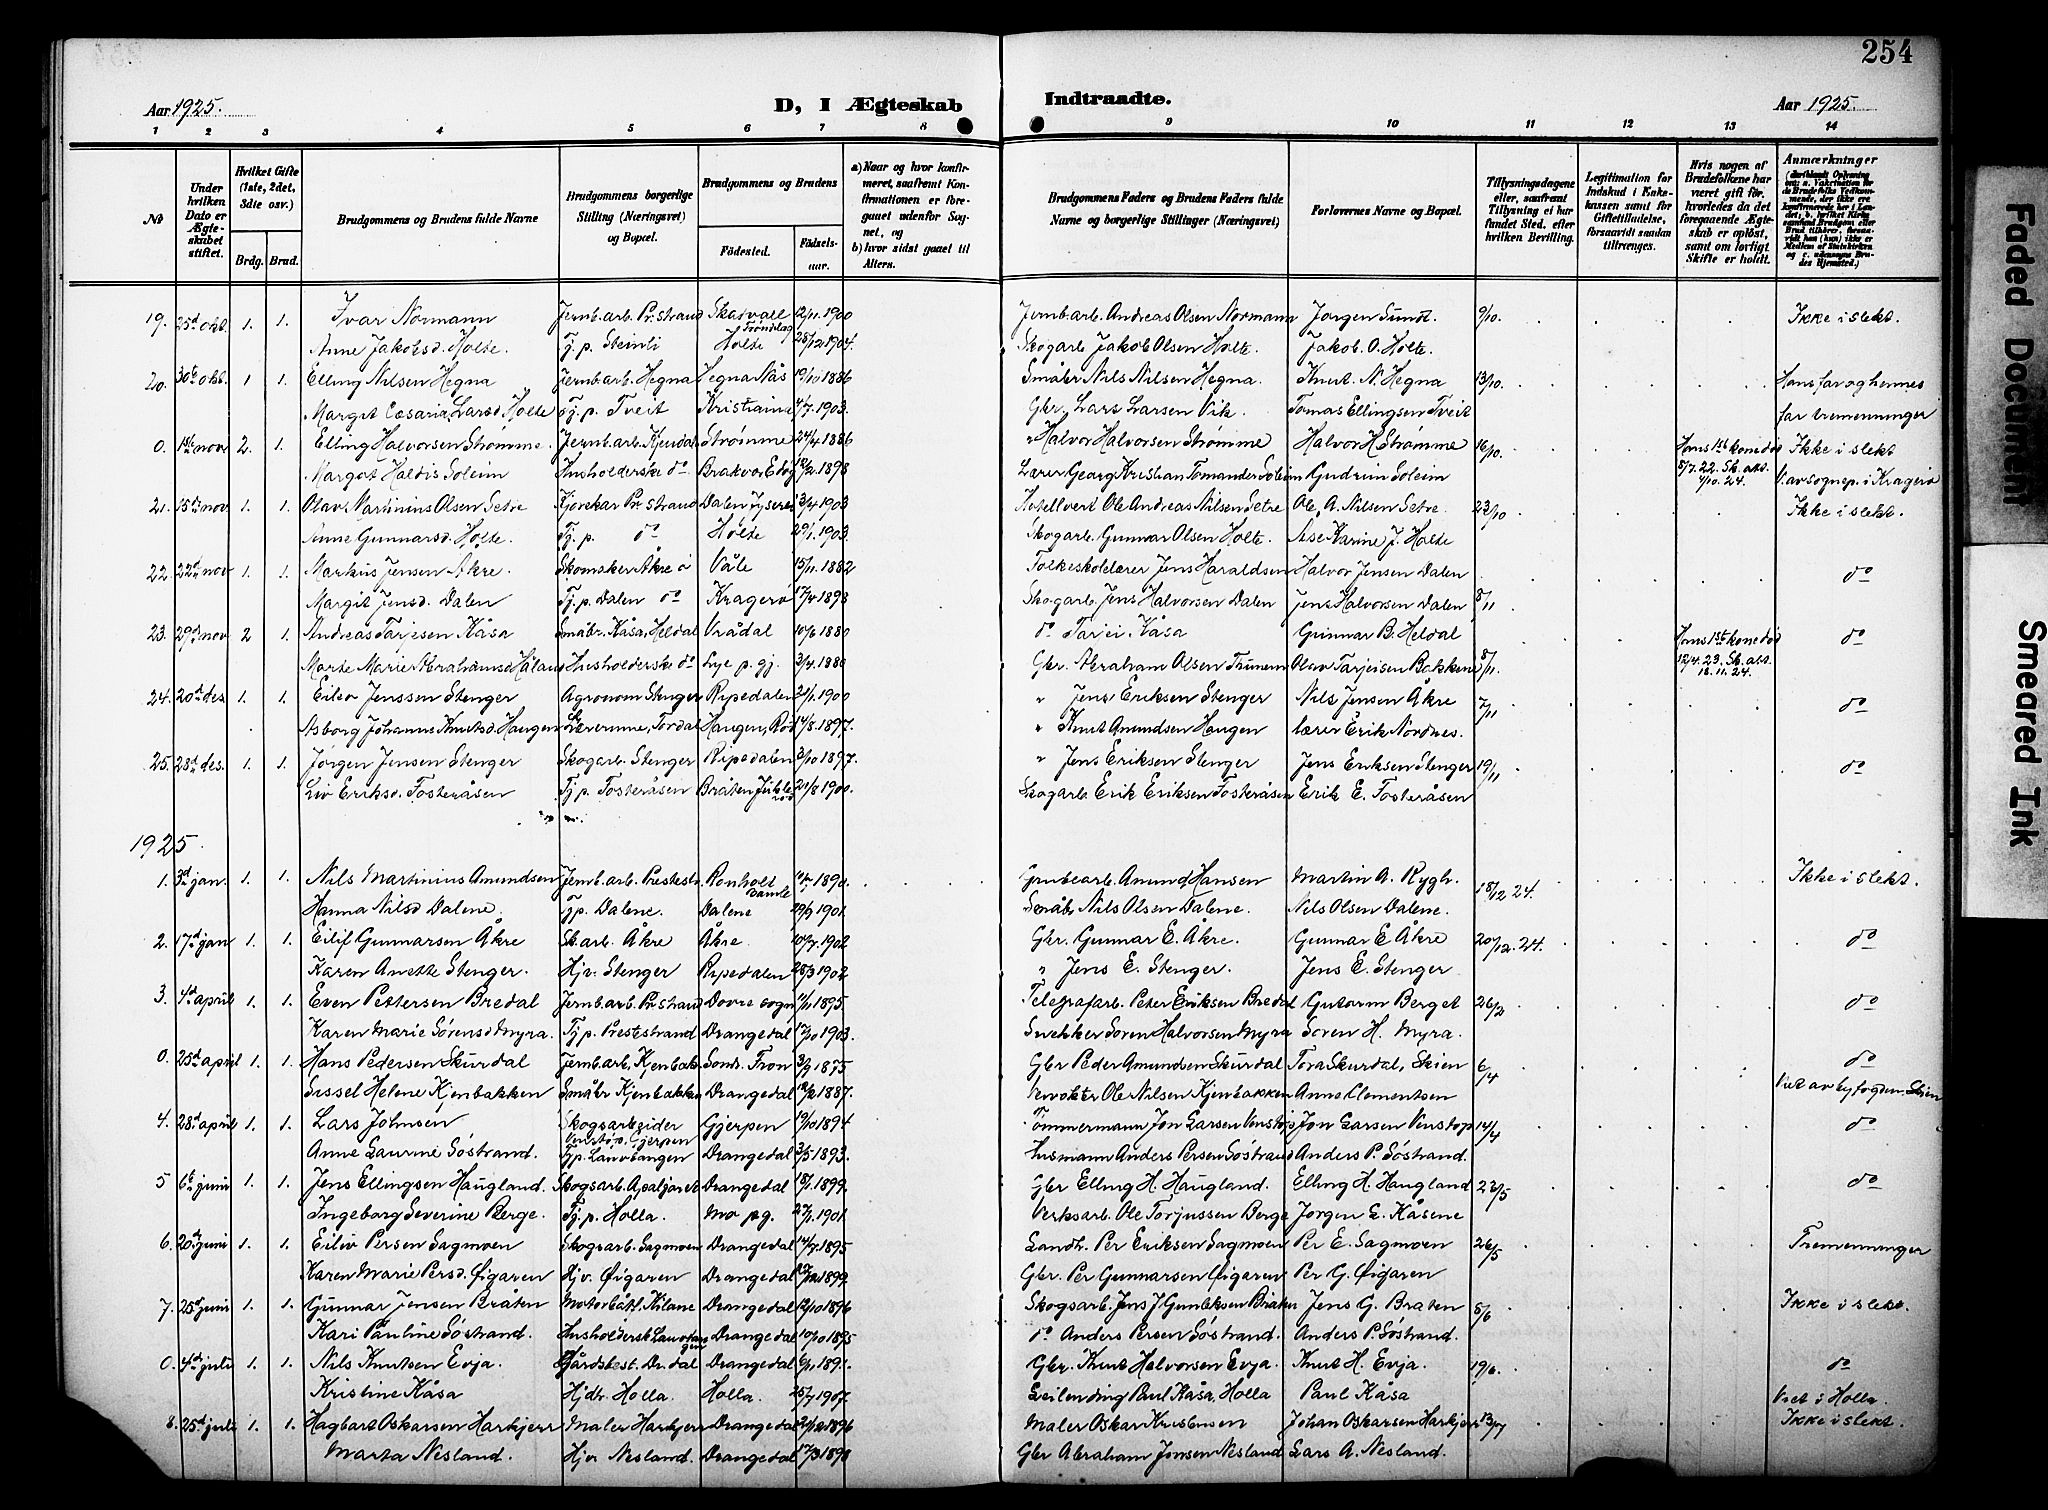 254
Aar 1925.
D, I Ægteskab Indtraadte.
Aar 1925.
1 2 3 4 5 6 7 8 9 10 11 12 13 14
No
Under hvilken Dato er Ægteskabet stiftet.
Hvilket Gifte (1ste, 2det, 3die osv.)
Brdg. Brud.
Brudgommens og Brudens fulde Navne
Brudgommens borgerlige Stilling (Næringsvei) og Bopæl.
Brudgommens og Brudens
Fødested. Fødselsaar.
a) Naar og hvor konfirmeret, saafremt Konfirmationen er foregaaet udenfor Sognet, og
b) hvor sidst gaaet til Alters.
Brudgommens Faders og Brudens Faders fulde Navne og borgerlige Stillinger (Næringsvei)
Forlovernes Navne og Bopæl.
Tillysningsdagene eller, saafremt Tillysning ei har fundet Sted, efter hvilken Bevilling.
Legitimation for Indskud i Enkekassen samt for Giftetilladelse, forsaavidt saadan tiltrænges.
Hvis nogen af Brudefolkene har været gift før, hvorledes da det foregaaende Ægteskab er opløst, samt om lovligt Skifte er holdt.
Anmærkninger
19. 25d okt. 1. 1. Ivar Normann Jernb.arb. Pr.strand Skatval Trøndelag 12/11 1900 Jernb.arb. Andreas Olsen Normann Jørgen Sundt. 9/10. Ikke i slekt.
Anne Jakobsd. Holte. Tj. p. Steinli Holte 25/12 1904. Skogarb Jakob Olsen Holte. Jakob O. Holte.
20. 30te okt. 1 1. Elling Nilsen Hegna Jernb.arb. Hegna Hegna Nås 19/10 1886 Småbr Nils Nilsen Hegna. Knut N. Hegna 13/10. Hans far og hennes
Margit Cæsaria Larsd. Holte Tj. p. Tveit Kristiania 4/7 1903. Gbr. Lars Larsen Vik. Tomas Ellingsen Tveit far tremenninger
0. 1ste nov 2. 1. Elling Halvorsen Strømme. Jernb.arb. Kjendal Strømme 24/4 1886 " Halvor Halvorsen Strømme Halvor H. Strømme 16/10. Hans 1ste kone død 5/7. 22. Sk. att. 4/10. 24. Ikke i slekt
Margot Haldis Soleim Husholderske do Brakvor Edøy 10/2 1898 Lærer Georg Kristian Tomander Soleim Gudrun Soleim V. av sognep. i Kragerø
21. 15de nov 1. 1. Olav Martinius Olsen Setre Kjørekar Pr.strand Dalen 13/4 1903 Hotellvert Ole Andreas Nilsen Setre Ole A. Nilsen Setre. 23/10 Ikke i slekt.
Anne Gunnarsd. Holte. Tj. p. do Holte 29/1. 1903. Skogarb. Gunnar Olsen Holte. Karine J. Holte
22. 22d nov 1. 1. Markus Jensen Åkre. Skomaker Åkre i Våle 15/11. 1882 Folkeskolelærer Jens Haraldsen Halvor Jensen Dalen do
Margit Jensd. Dalen Tj. p. Dalen do Kragerø 17/4 1893 Skogarb. Jens Halvorsen Dalen Jens Halvorsen Dalen 8/11
23. 29d nov 2 1. Andreas Tarjesen Kåsa Småbr. Kåsa, Heldal Vrådal 10/6 1880 do Tarjei Kåsa Gunnar B. Heldal Hans 1ste kone død 12/4. 23. Sk. att. 18. 11. 24. do
Marte Marie Abrahamsd. Håland Husholderske do Lye p. gj. 3/4. 1880 Gbr. Abraham Olsen Tunem Olav Tarjeisen Bakkene 8/11.
24. 20de des 1. 1. Eilev Jenssen Stenger Agronom Stenger Ripedalen 31/1. 1900 " Jens Eriksen Stenger Nils Jensen Åkre 7/11 do
Asborg Johanne Knutsd. Haugen Lærerinne, Tørdal Haugen, Rød 14/8. 1897. " Knut Amundsen Haugen lærer Erik Nordnes.
25. 28de des. 1. 1. Jørgen Jensen Stenger Skogarb. Stenger Ripedalen 3/10 1897. " Jens Eriksen Stenger Jens Eriksen Stenger 19/11 do
Liv Eriksd. Fosteråsen Tj. p. Fosteråsen Bråten 21/8 1900. Skogarb. Erik Eriksen Fosteråsen Erik E. Fosteråsen
1925.
1. 3d jan. 1. 1. Nils Martinius Amundsen Jernb.arb. Prestestr. Ronholt Bamle 1890. Grubearb. Amund Hansen Martin A. Rygh. 18/12 24. Ikke i slekt.
Hanna Nilsd Dalene. Tj.p. Dalene. Dalene 29/9 1901. Småbr Nils Olsen Dalene. Nils Olsen Dalene.
2. 17d jan 1. 1. Eilif Gunnarsen Åkre Sk.arb. Åkre Åkre. 10/7. 1902 Gbr. Gunnar E. Åkre. Gunnar E Åkre 20/12. 24. do
Karen Anette Stenger. Hjv. Stenger Ripedalen 28/3 1902 " Jens E. Stenger. Jens E. Stenger
3. 4d april 1. 1. Even Pettersen Bredal Jernb.arb. Pr.strand Dovre sogn 11/11 1895. Telegrafarb. Peter Eriksen Bredal Gutorm Berget 26/2 do
Karen Marie Sørensd Myra. Tj. p. Prestestrand Drangedal 12/10 1903. Snekker Søren Halvorsen Myra Søren H. Myra.
0. 25d april 1. 1. Hans Pedersen Skurdal Jernb.arb. Kjenbak. Sønd. Fron 3/9 1875 Gbr Peder Amundsen Skurdal Tora Skurdal, Skien 6/4 do
Sissel Helene Kjenbakken Småbr Kjenbakken Drangedal 12/2 1887. Ole Nilsen Kjenbakken Anne Clementsen Viet av byfogden Skien
4. 28d april 1. 1. Lars Johnsen Skogsarbeider Venstøp, Gjerpen Gjerpen 19/10 1894 Tømmermann Jon Larsen Venstøp Jon Larsen Venstøp 14/4 do
Anne Laurine Søstrand. Tj.p. Lauvvangen Drangedal 3/5 1893. Husmann Anders Persen Søstrand Anders P. Søstrand.
5 6te juni 1. 1. Jens Ellingsen Haugland. Skogsarb. Apaljordet Drangedal 18/1. 1899. Gbr Elling H. Haugland. Elling H. Haugland 23/5 do
Ingeborg Severine Berge. Tj. p. Holla. Mo pg. 27/1. 1901 Verksarb. Ole Torjussen Berge Jørgen E. Kåsene
6. 20de juni 1. 1. Eiliv Persen Sagmoen Skogsarb. Sagmoen Drangedal 14/7 1895 Landh. Per Eriksen Sagmoen Per E. Sagmoen 26/5 Tremenninger
Karen Marie Persd. Øigaren Hjv. Øigaren Drangedal 1899 Gbr. Per Gunnarsen Øigaren Per G. Øigaren
7. 25d juni 1. 1. Gunnar Jensen Bråten Motorbåtf. Kilane Drangedal 12/10 1896 Skogsarb. Jens J Gunleksen Bråten Jens G. Bråten 5/6 Ikke i slekt.
Kari Pauline Søstrand. Husholdersk Lauvvangen Drangedal 10/10 1895 do Anders Persen Søstrand. Anders P. Søstrand.
0. 4d juli 1. 1. Nils Knutsen Evja Gårdsbest. Dr.dal Drangedal 6/11 Gbr. Knut Halvorsen Evja. Knut H. Evja. 19/6. do
Kristine Kåsa Hjdtr. Holla. Holla. 25/7 1907. Leilending Paul Kåsa, Holla Paul Kåsa Viet i Holla
8. 25d juli 1. 1. Hagbart Oskarsen Harkjerr Maler Harkjerr Drangedal 21/12 1896 Maler Oskar Kristensen Johan Oskarsen Harkjerr 13/7 Ikke i slekt.
Marta Nesland. Hjv Nesland. Drangedal 17/3 1898 Gbr Abraham Jonsen Nesland Lars A. Nesland.
Faded Document
Smeared Ink